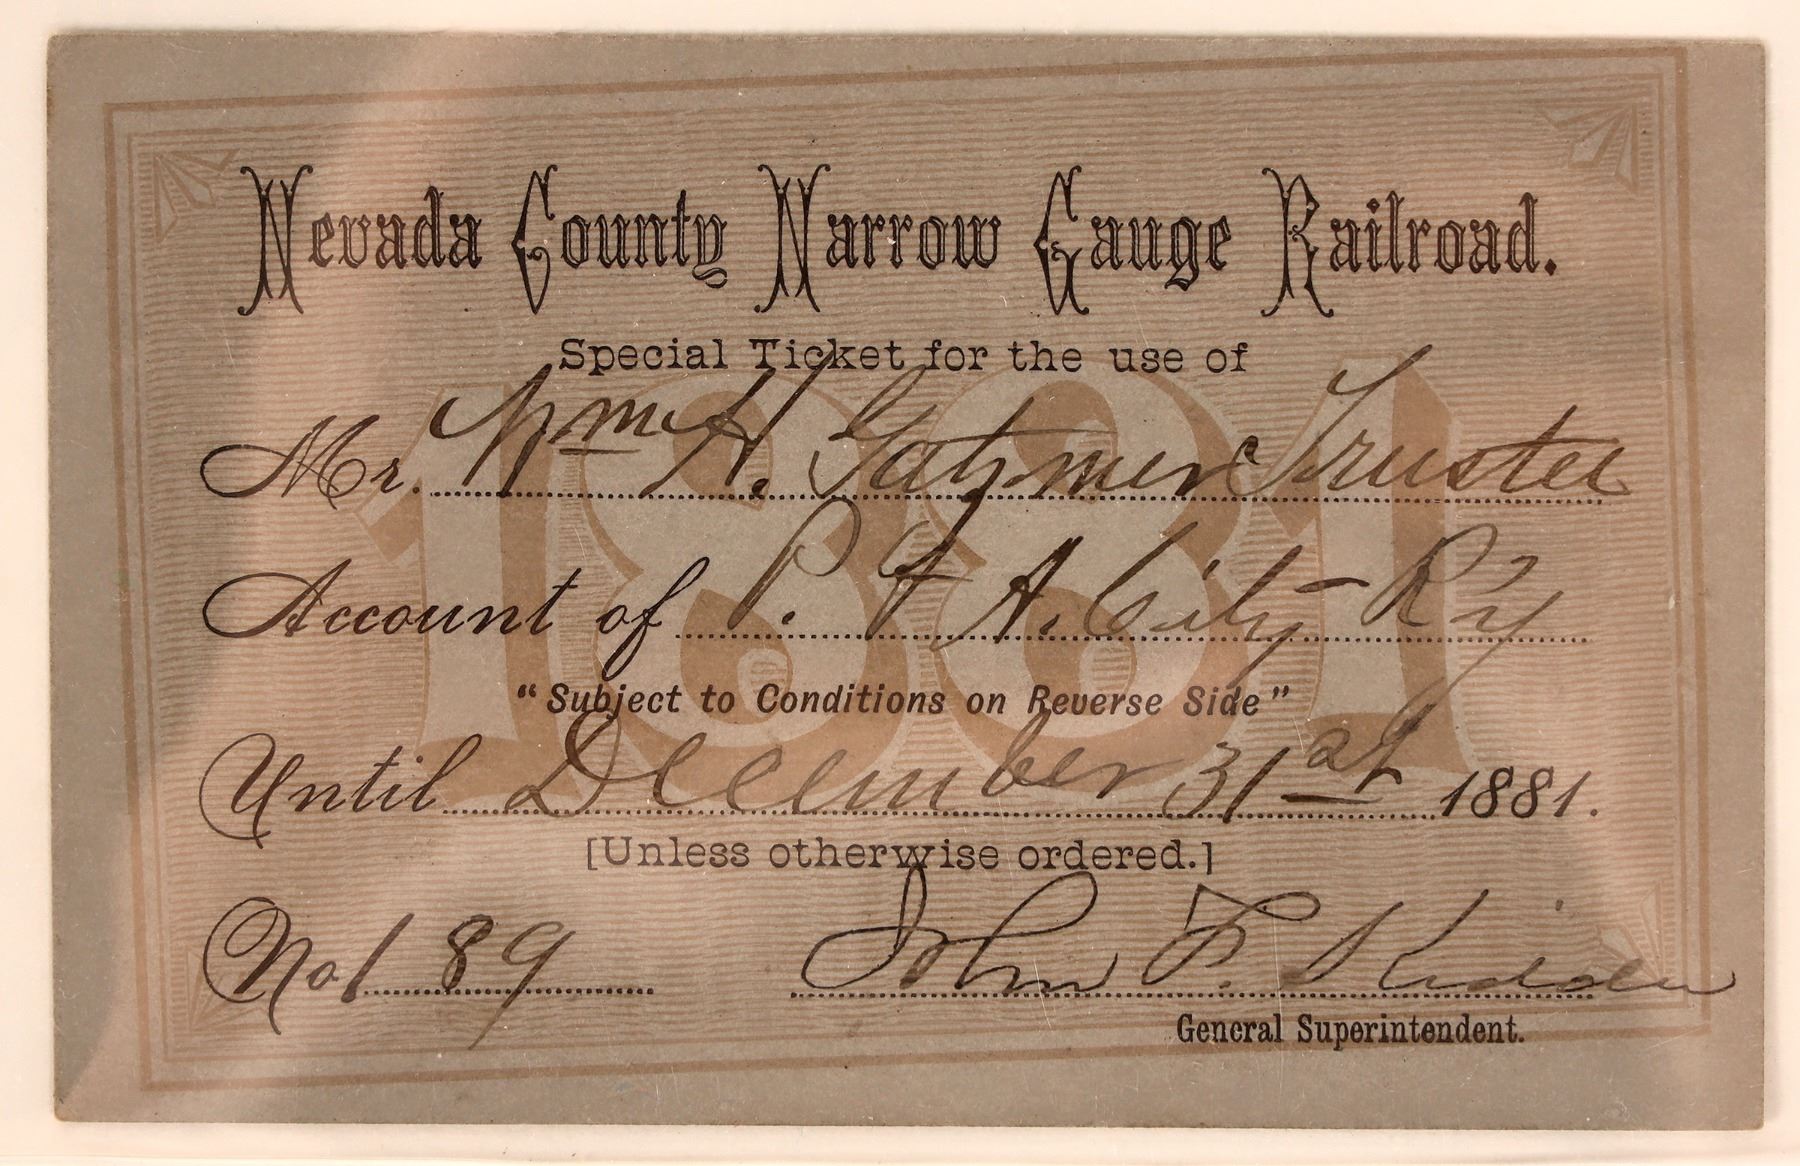 Nevada County Narrow Gauge Railroad.
Special Ticket for the use of
Mr. Wm H. Gatzmer Trustee
Account of P. & A. City Ry
"Subject to Conditions on Reverse Side"
Until December 31st 1881.
[Unless otherwise ordered.]
No 189
John F. Kidder
General Superintendent.
1881